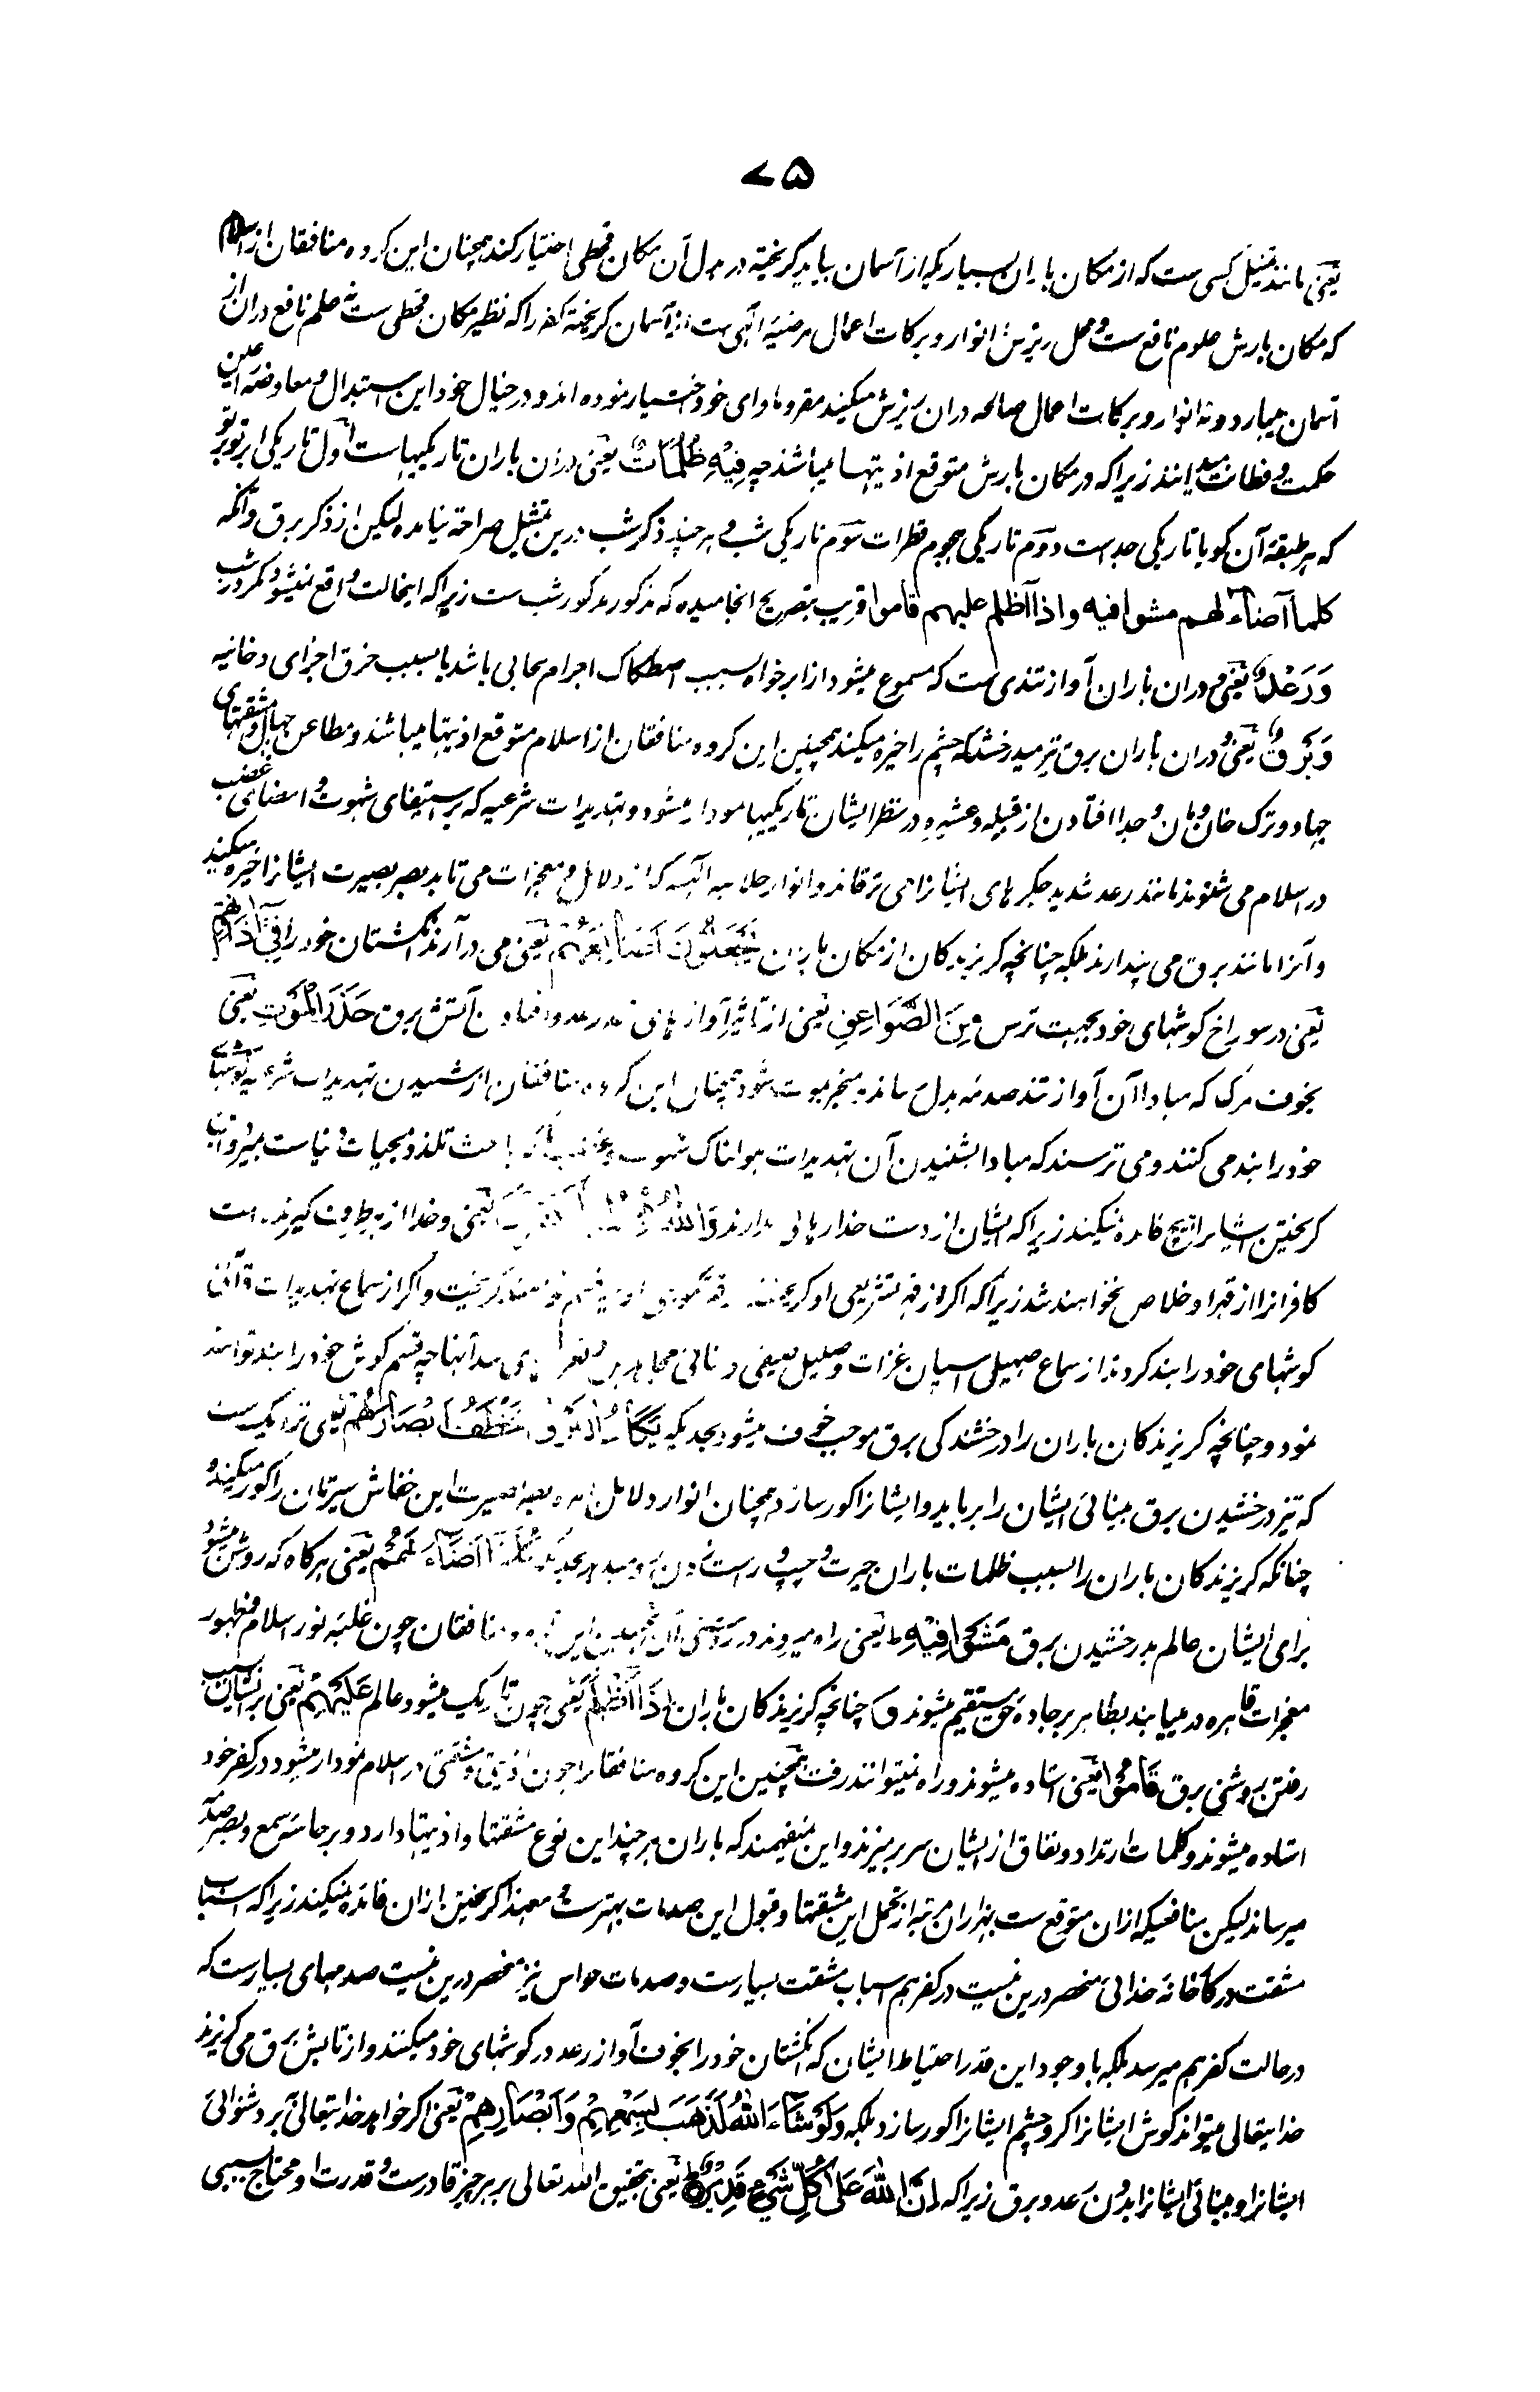 ۷۵
یعنی مانند تمثیل کسی ست که از مکان باران بسیار یکه از آسمان بباید گریخته در بدل آن مکان قحطی اختیار کند همچنان این گروه منافقان از اسلام
که مکان بارش علوم نافع ست و محل ریزش انوار و برکات اعمال مرضیه الهی ست از آسمان گریخته کفر را که نظیر مکان قحطی ست نه علم نافع دران از
آسمان میبارد و نه انوار و برکات اعمال صالحه دران ریزش میکنند مقر و ماوای خود اختیار نموده اند و در خیال خود این استبدال و معاوضه را عین
حکمت و فطانت میدانند زیرا که در مکان بارش متوقع اذیتها میباشد چه فِیْهِ ظُلُمَاتٌ یعنی دران باران تاریکیهاست اول تاریکی ابر توبرتو
که هر طبقه آن گویا تاریکی جداست دوم تاریکی هجوم قطرات سوم تاریکی شب و هر چند ذکر شب درین تمثیل صراحة نیامده لیکن از ذکر برق و آنکه
کلما اضآء لهم مشوا فیه و اذا اظلم علیهم قاموا قریب بتصریح انجامیده که مذکور مذکور شب ست زیرا که اینحالت واقع نمیشود مگر در شب
وَرَعْدٌ یعنی و دران باران آواز تندی ست که مسموع میشود از ابر خواه بسبب اصطکاک اجرام سحابی باشد یا بسبب خرق اجزای دخانیه
وَبَرْقٌ یعنی و دران باران برق تیز میدرخشد که چشم را خیره میکند همچنین این گروه منافقان از اسلام متوقع اذیتها میباشند و مطاعن جهال و مشقتهای
جهاد و ترک خان و مان و جدا افتادن از قبیله و عشیره در نظر ایشان تاریکیها نمودار میشود و تهدیدات شرعیه که بر استیفای شهوت و امضای غضب
در اسلام می شنوند مانند رعد شدید جگرهای ایشانرا می ترقاند و انوار جلالیه الهیه که از دلائل و معجزات می تابد بصر بصیرت ایشانرا خیره میکند
و آنرا مانند برق می پندارند بلکه چنانچه گریزندگان از مکان باران یَجْعَلُوْنَ اَصَابِعَهُمْ یعنی می در آرند انگشتان خود را فِیْ اٰذَانِهِمْ
یعنی در سوراخ گوشهای خود بجهت ترس مِنَ الصَّوَاعِقِ یعنی از تاثیر آوازهای تند رعد و افتادن آتش برق حَذَرَ الْمَوْتِ یعنی
بخوف مرگ که مبادا آن آواز تند صدمه بدل رساند و منجر بموت شود همچنان این گروه منافقان از شنیدن تهدیدات شرعیه گوشهای
خود را بند می کنند و می ترسند که مبادا بشنیدن آن تهدیدات هولناک شهوت و غضب که باعث تلذذ و حیات دنیاست بمیرد و این
گریختن ایشانرا هیچ فائده نمیکند زیرا که ایشان از دست خدا رهائی ندارند وَاللّٰهُ مُحِیْطٌ بِالْکَافِرِیْنَ یعنی و خدا از هر طرف گیرنده است
کافرانرا از قهر او خلاص نخواهند شد زیرا که اگر از قهر تشریعی او گریختند قهر تکوینی او را چه قسم خواهند گریخت و اگر از سماع تهدیدات قرآنی
گوشهای خود را بند کردند از سماع صهیل اسپان غزات و صلیل سیوف مجاهدین چه قسم گوش خود را بند توانند
نمود و چنانچه گریزندگان باران را درخشندگی برق موجب خوف میشود بحدیکه یَکَادُ الْبَرْقُ یَخْطَفُ اَبْصَارَهُمْ یعنی نزدیک ست
که تیز درخشیدن برق بینائی ایشان را برباید و ایشانرا کور سازد همچنان انوار دلائل بصیرت این خفاش سیرتان را کور میکند و
چنانکه گریزندگان باران را بسبب ظلمات باران حیرت و چپ و راست بحدیکه کُلَّمَا اَضَآءَ لَهُمْ یعنی هرگاه که روشن میشود
برای ایشان عالم بدرخشیدن برق مَشَوْا فِیْهِ یعنی راه میروند در روشنی آن همچنین این گروه منافقان چون غلبه نور اسلام و ظهور
معجزات قاهره در میابند بظاهر بر جاده حق مستقیم میشوند و چنانچه گریزندگان باران وَاِذَا اَظْلَمَ یعنی چون تاریک میشود عالم عَلَیْهِمْ یعنی بر ایشان بسبب
رفتن روشنی برق قَامُوْا یعنی استاده میشوند و راه نمیتوانند رفت همچنین این گروه منافقانرا چون اذیتی و مشقتی در اسلام نمودار میشود در کفر خود
استاده میشوند و کلمات ارتداد و نفاق از ایشان سر بر میزند و این نمیفهمند که باران هر چند این نوع مشقتها و اذیتها دارد و بر حاسه سمع و بصر صدمه
میرساند لیکن منافعیکه ازان متوقع ست بهزاران مرتبه از تحمل این مشقتها و قبول این صدمات بهتر ست و معهذا گریختن ازان فائده نمیکند زیرا که اسباب
مشقت در کارخانه خدائی منحصر درین نیست در کفر هم اسباب مشقت بسیارست و صدمات حواس نیز منحصر درین نیست صدمهای بسیارست که
در حالت کفر هم میرسد بلکه باوجود این قدر احتیاط ایشان که انگشتان خود را بخوف آواز رعد در گوشهای خود میکنند و از تابش برق می گریزند
خدایتعالی میتواند گوش ایشانرا کر و چشم ایشانرا کور سازد بلکه وَلَوْ شَآءَ اللّٰهُ لَذَهَبَ بِسَمْعِهِمْ وَاَبْصَارِهِمْ یعنی اگر خواهد خدایتعالی برد شنوائی
ایشانرا و بینائی ایشانرا بدون رعد و برق زیرا که اِنَّ اللّٰهَ عَلٰی کُلِّ شَیْءٍ قَدِیْرٌ یعنی بتحقیق الله تعالی بر هر چیز قادرست و قدرت او محتاج سببی